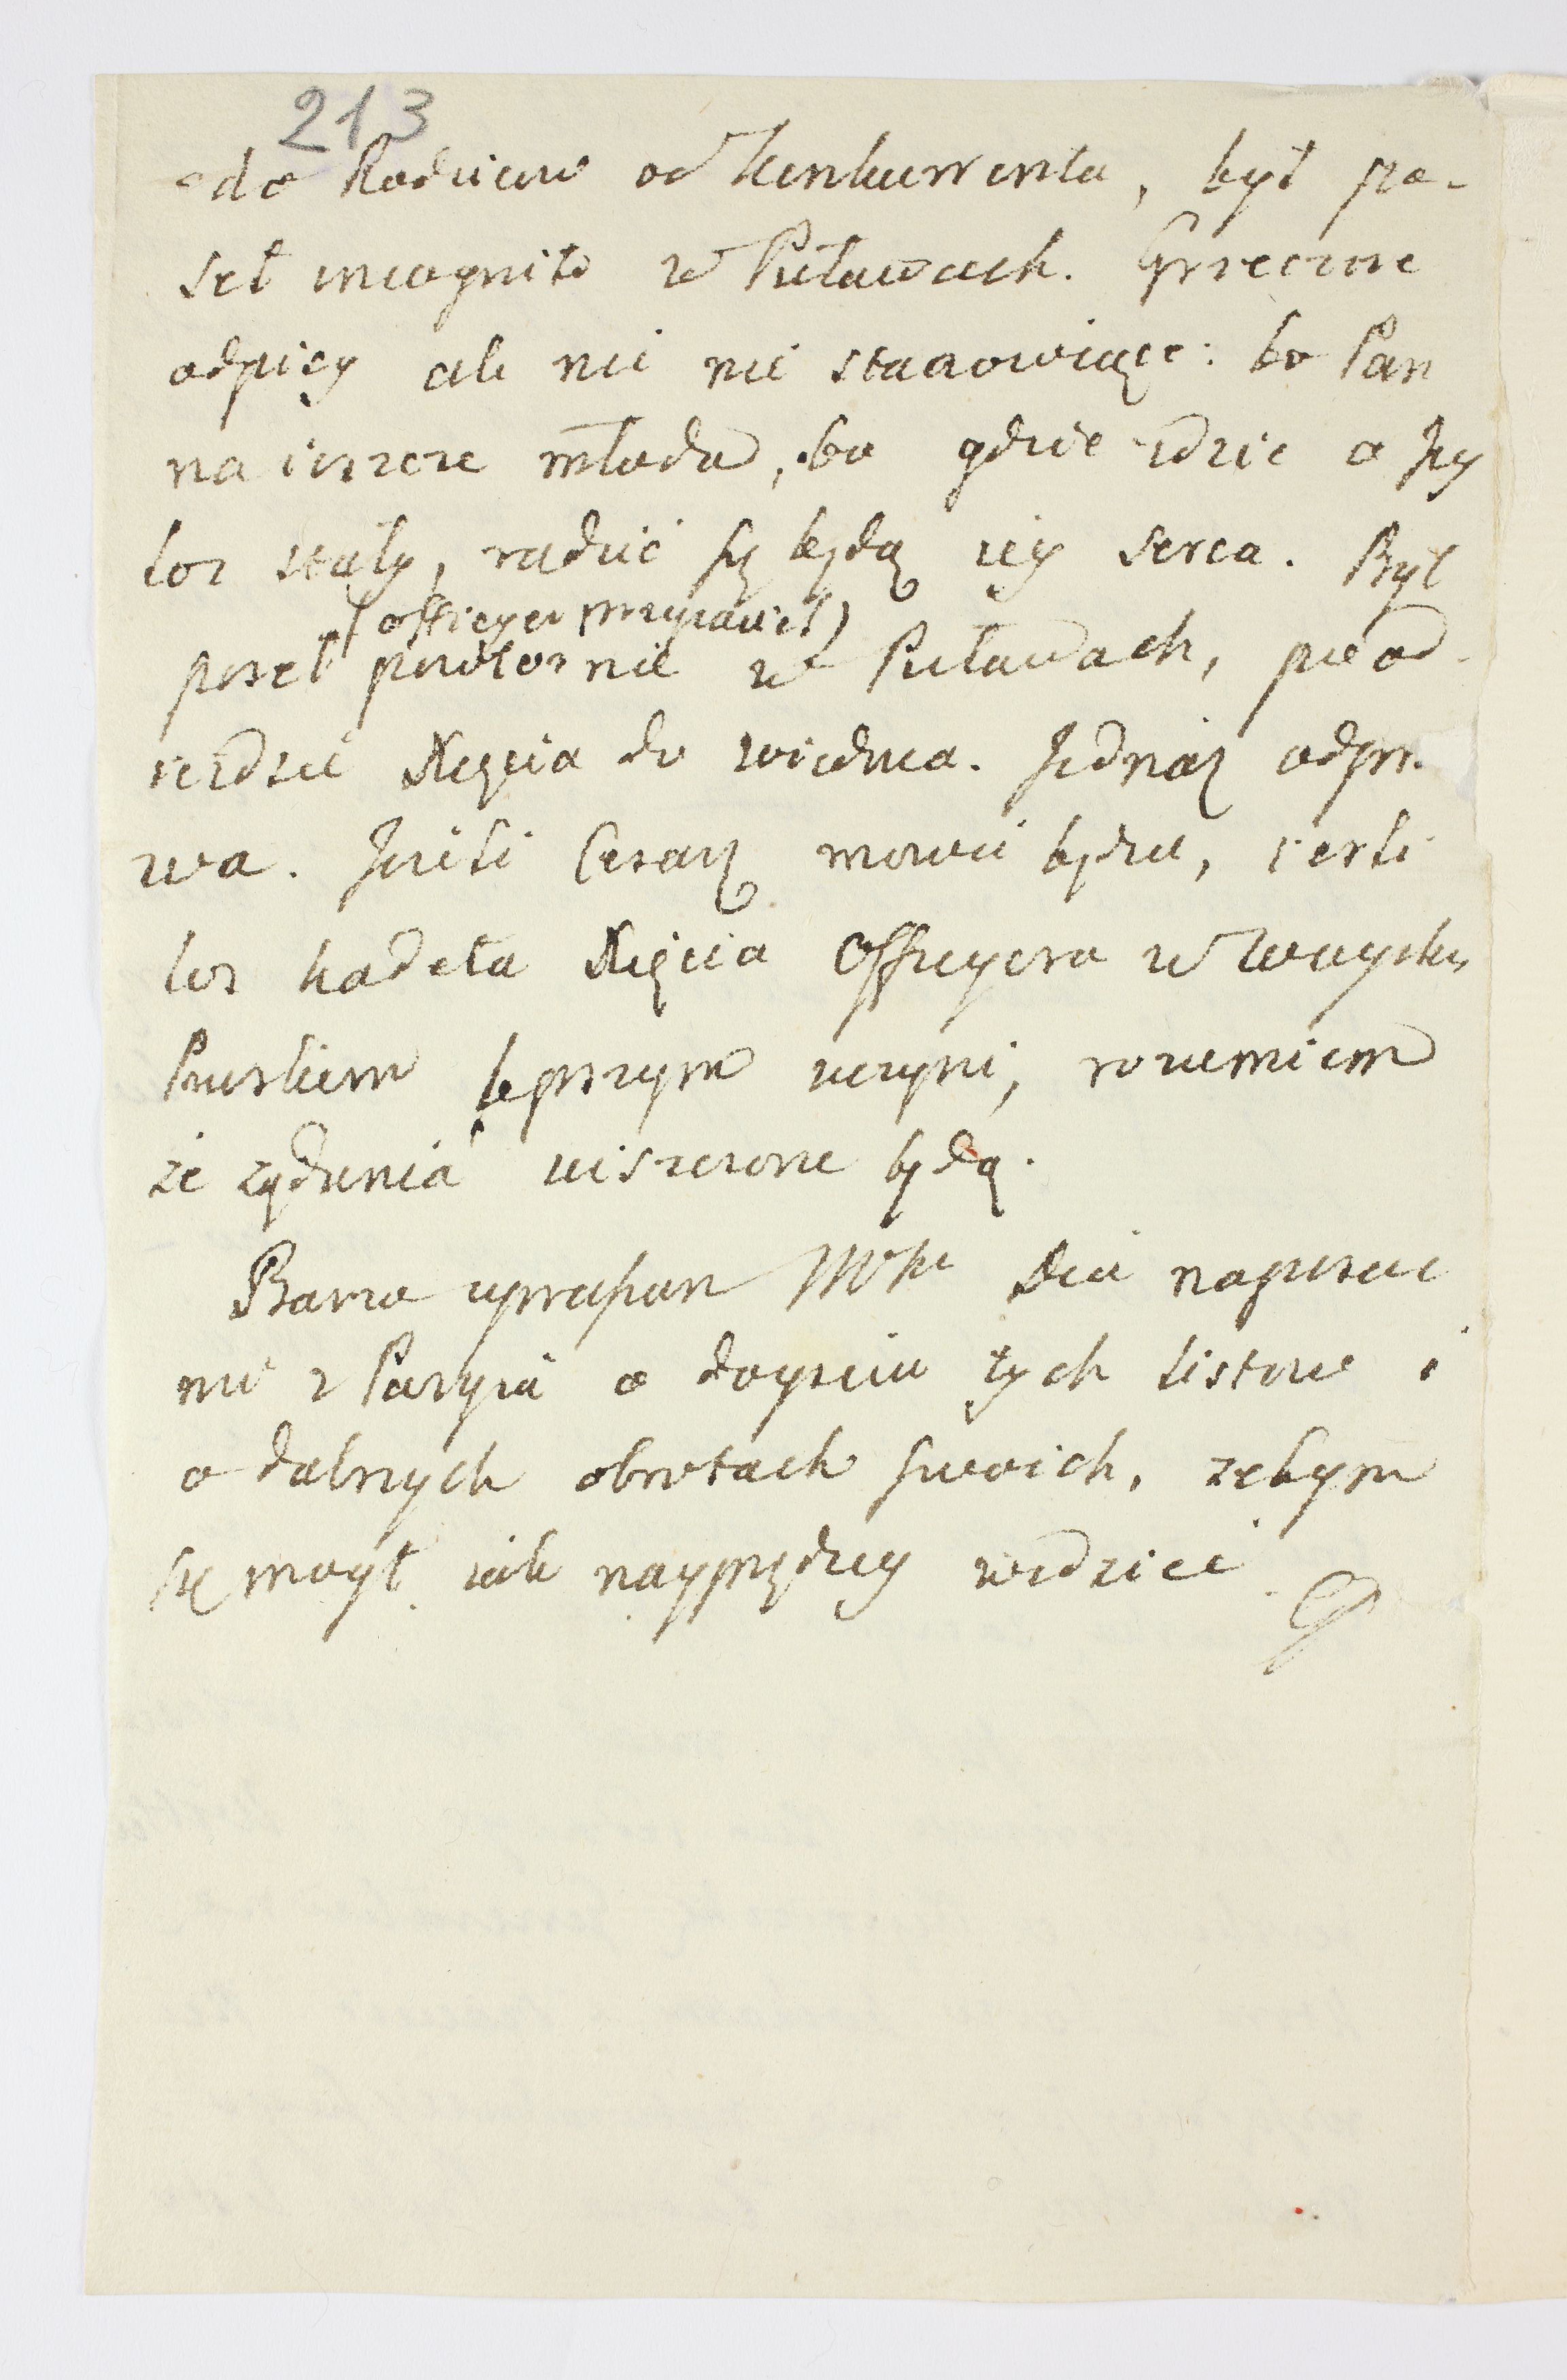 213
do Rodzicow od Konkurrenta, był po-
seł incognito w Puławach. Grzeczne
odpisy ale nic nie stanowiące: bo Pan
na ieszcze młoda, bo gdzie idzie o Jey
los stały, radzić się będą iey serca. Był
(officyer przyiaciel)
poseł powtornie w Puławach, po od
iezdzie Xięcia do Wiednia. Jednaż odpo-
wa. Jeżeli Cesarz mowić będzie, ieśli
los kadeta Xięcia Officyera w Woysku
Pruskiem lepszym uczyni, rozumiem
że żądania uiszczone będą.
Barzo upraszam WPa Dia napisać
mi z Paryża o doyściu tych listow i
o dalszych obrotach swoich, żebym
się mogł iak nayprędzey widzieć